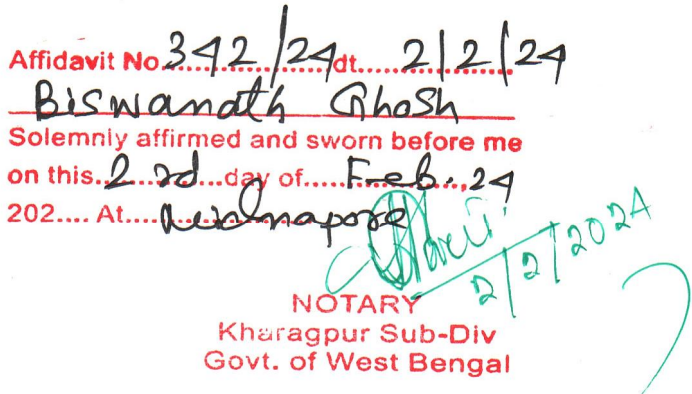 Affidavit No. 342/24 dt. 2/2/24
Biswanath Ghosh
Solemnly affirmed and sworn before me
on this 2 nd day of Feb., 24
202.... At.... Midnapore
2/2/2024
NOTARY
Kharagpur Sub-Div
Govt. of West Bengal